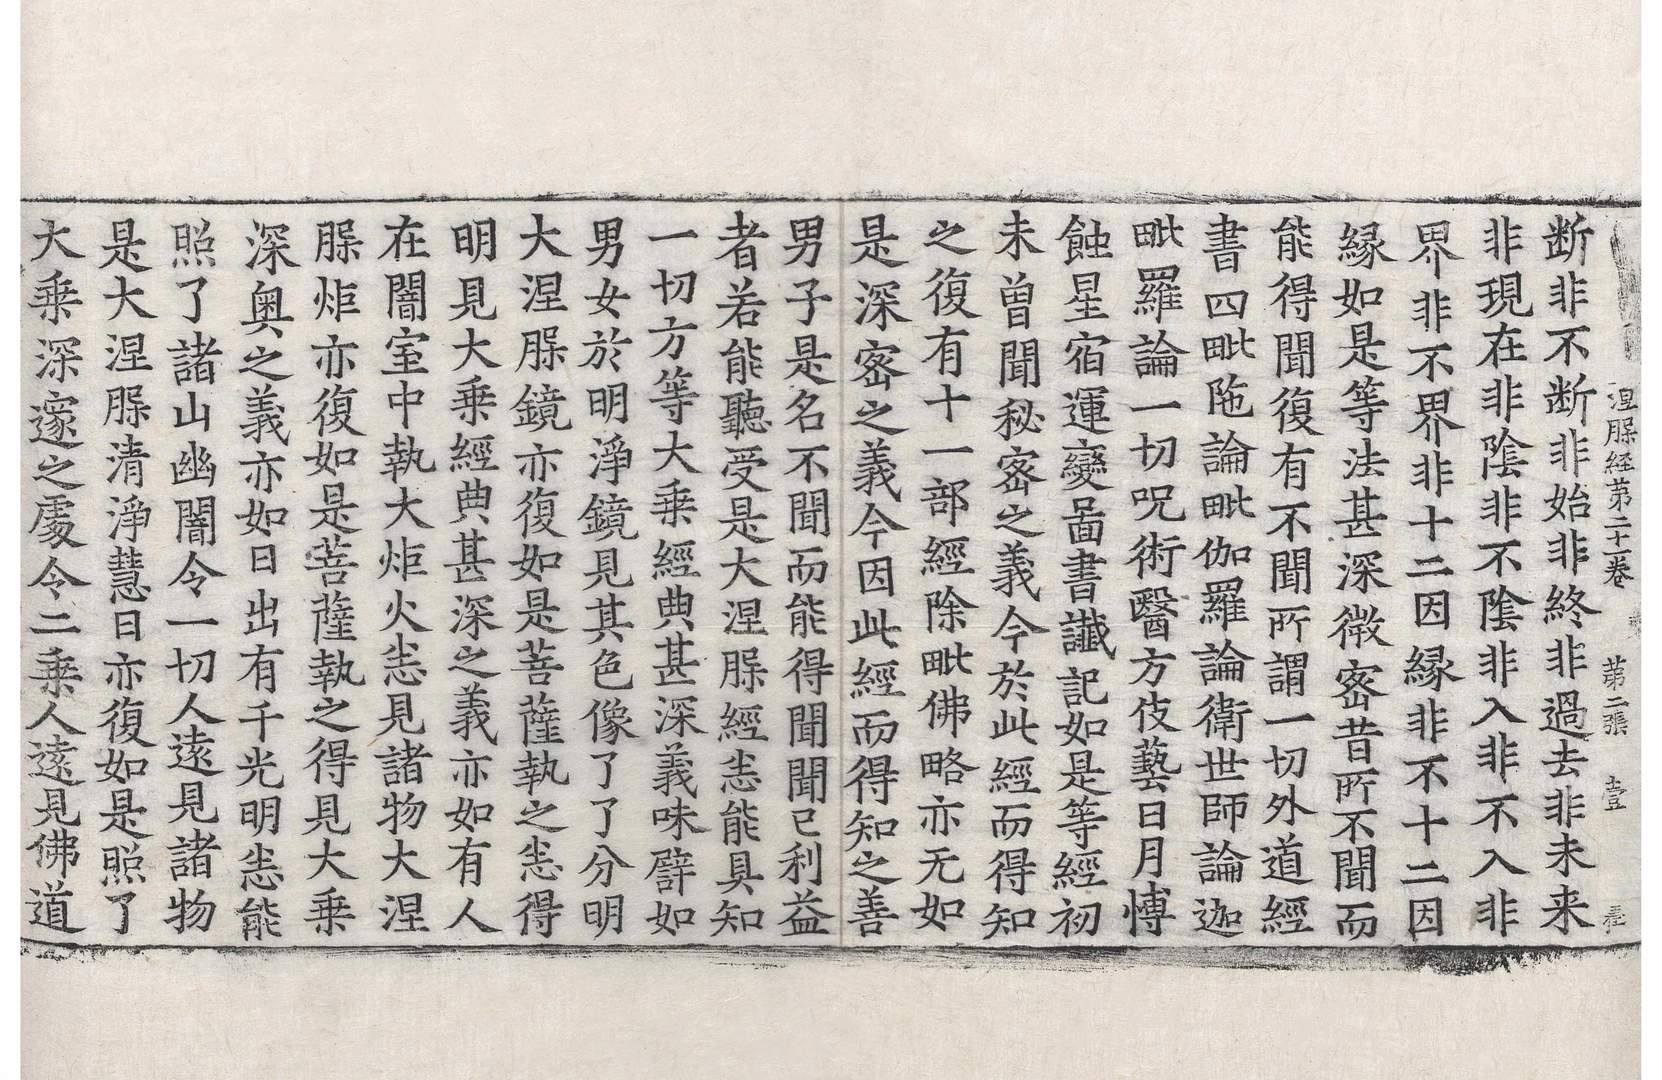 涅槃経第二十一卷 第二張 壹
断非不断非始非終非過去非未来
非現在非陰非不陰非入非不入非
界非不界非十二因縁非不十二因
縁如是等法甚深微宻昔所不聞而
能得聞復有不聞所謂一切外道經
書四毗陁論毗伽羅論衛世師論迦
毗羅論一切呪術醫方伎藝日月愽
蝕星宿運變啚書讖記如是等經初
未曽聞秘宻之義今於此經而得知
之復有十一部經除毗佛略亦无如
是深宻之義今因此經而得知之善
男子是名不聞而能得聞聞已利益
者若能聽受是大涅槃經悉能具知
一切方等大乗經典甚深義味譬如
男女於明淨鏡見其色像了了分明
大涅槃鏡亦復如是菩薩執之悉得
明見大乗經典甚深之義亦如有人
在闇室中執大炬火悉見諸物大涅
槃炬亦復如是菩薩執之得見大乗
深奥之義亦如日出有千光明悉能
照了諸山幽闇令一切人遠見諸物
是大涅槃清淨慧日亦復如是照了
大乗深邃之處令二乗人遠見佛道